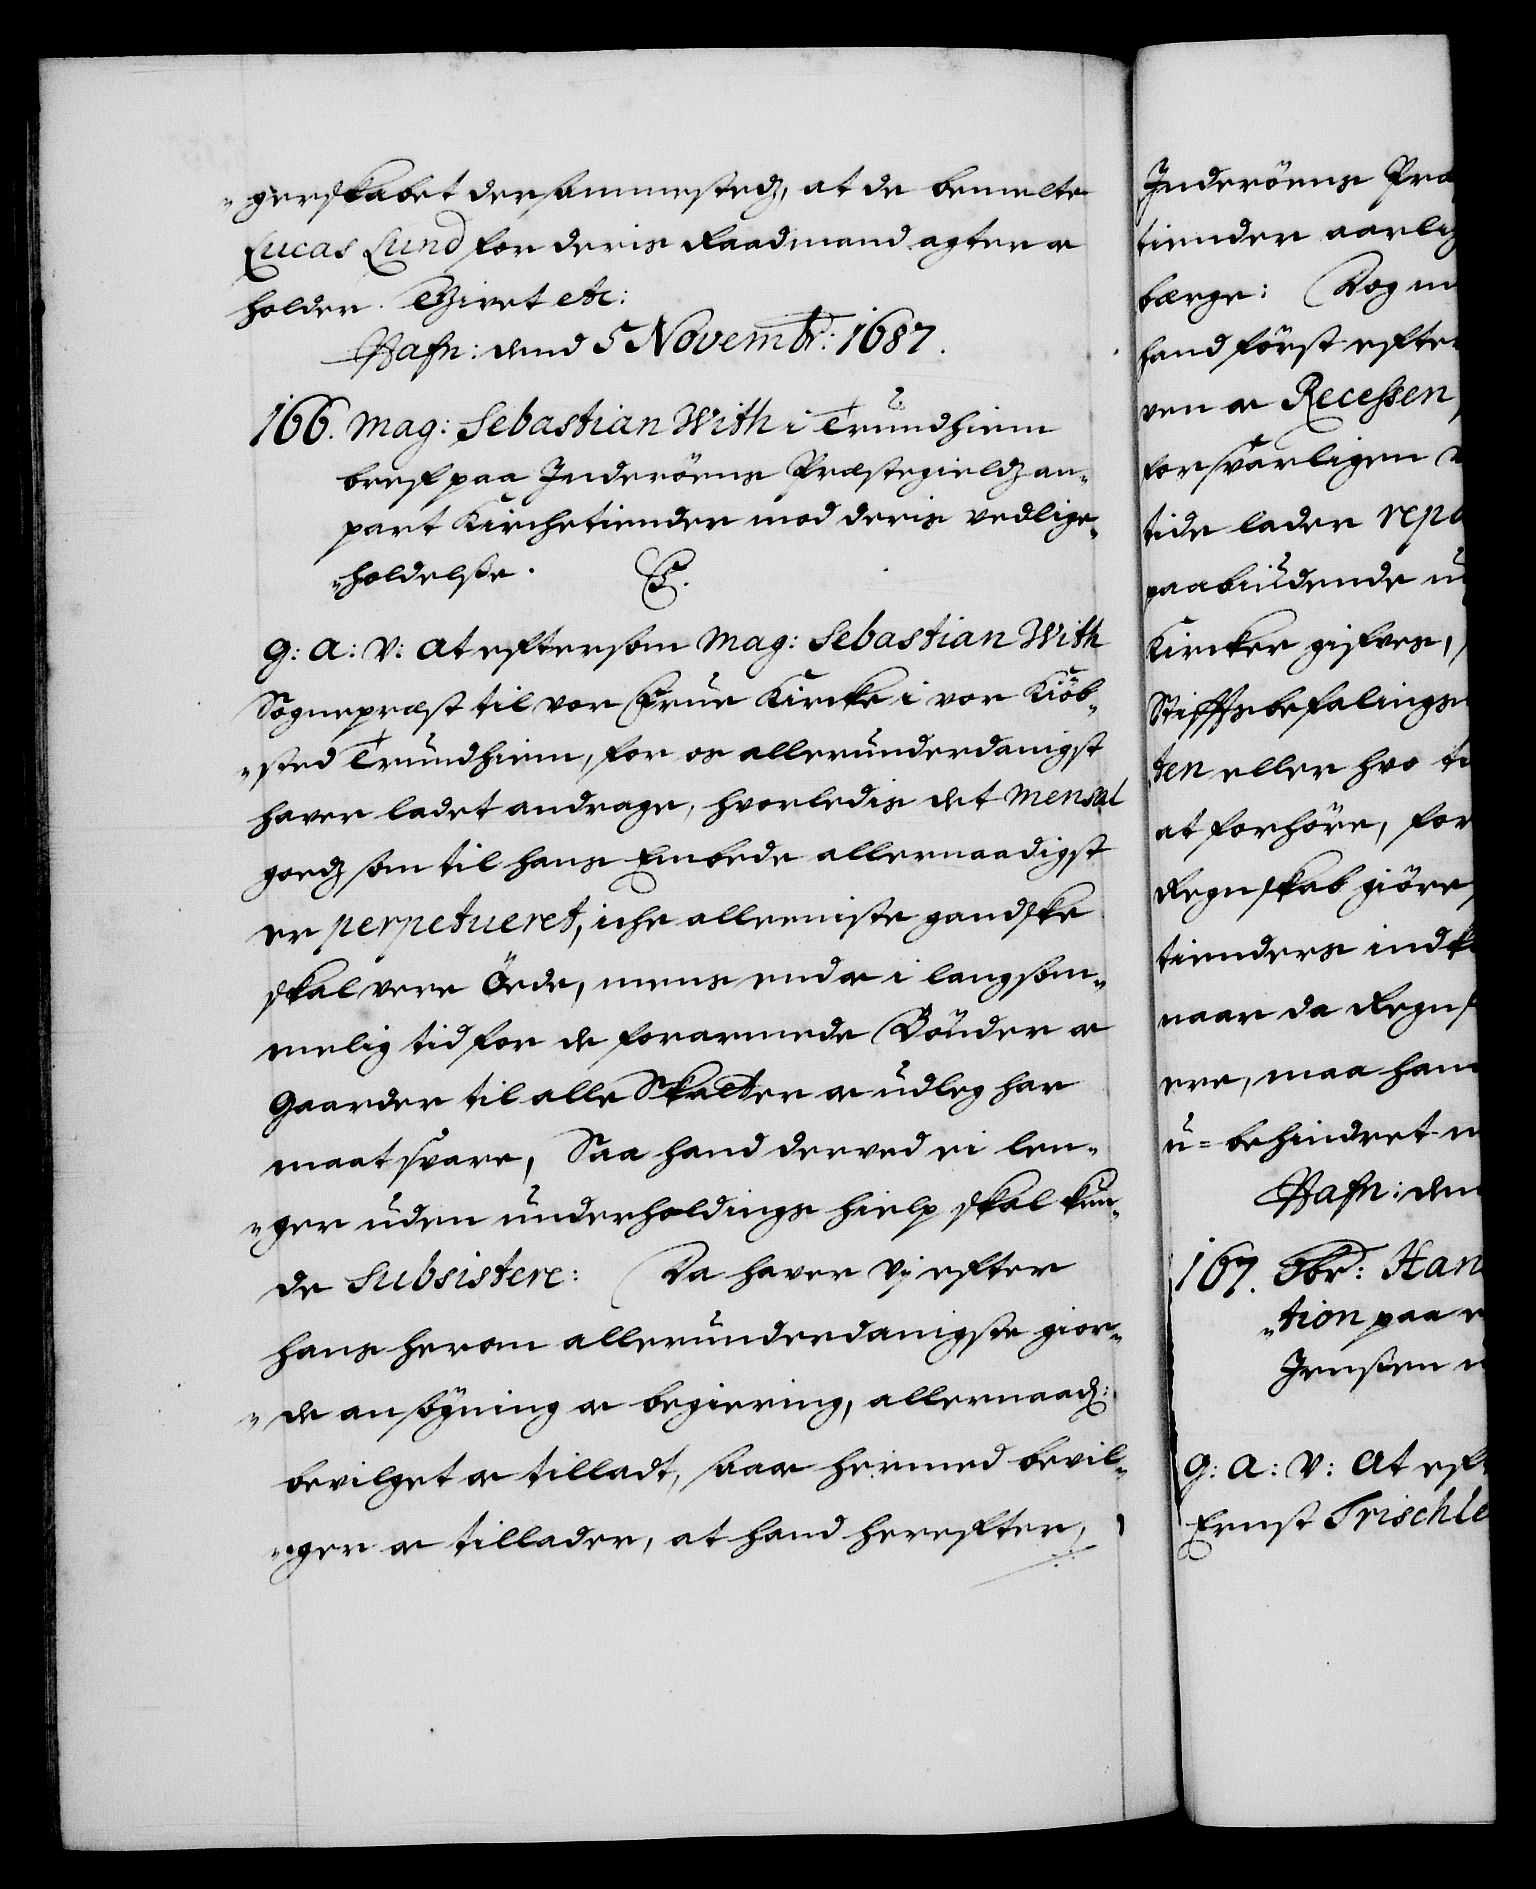 "gerskabet dersammestedz, at de bemelte
Lucas Lund for deris Raadmand agter oc
holder. Givet etc:
Hafn: dend 5 Novembr: 1687.
166. Mag: Sebastian With i Trundhiem
bref paa Inderöens Præstegieldz an-
part Kirchetiender mod deris vedlige-
"holdelsze.
G: A: V: At eftersom Mag: Sebastian With
Sognepræst til vor Frue Kircke i vor Kiöb-
"sted Trundhiem, for os allerunderdanigst
hafver ladet andrage, hvorledis det Mensal
goedz som til hans Embede allernaadigst
er perpetueret, iche alleeniste gandske
skal vere Öede, mens end oc i langsom-
melig tid for de forarmede Bönder oc
Gaarder til alle Skatter oc udleg har
maat svare, Saa hand derved ei len-
"ger uden underholdings hielp skal kun-
de Subsistere: Da hafver Vj efter
hans herom allerunderdanigste gior-
"de ansögning oc begiering, allernaad:
bevilget oc tilladt, saa oc hermed bevil-
"ger oc tillader, at hand herefter,
Inderöens Præ
tiender aarlig
berge: Dog m
hand först efter
ven oc Recessen,
forsvarligen
tide lader repa
paabiudende u
Kircker gifves,
Stifftsbefalings
ten eller hvo
at forhöre, for
Regnskab giöre,
tienders indk
naar da Regns
ere, maa hand
u-behindret
Hafn: den
167. Fbr: Han
"tion paa
Jensten
G: A: V: At eft
Ernst Trischle